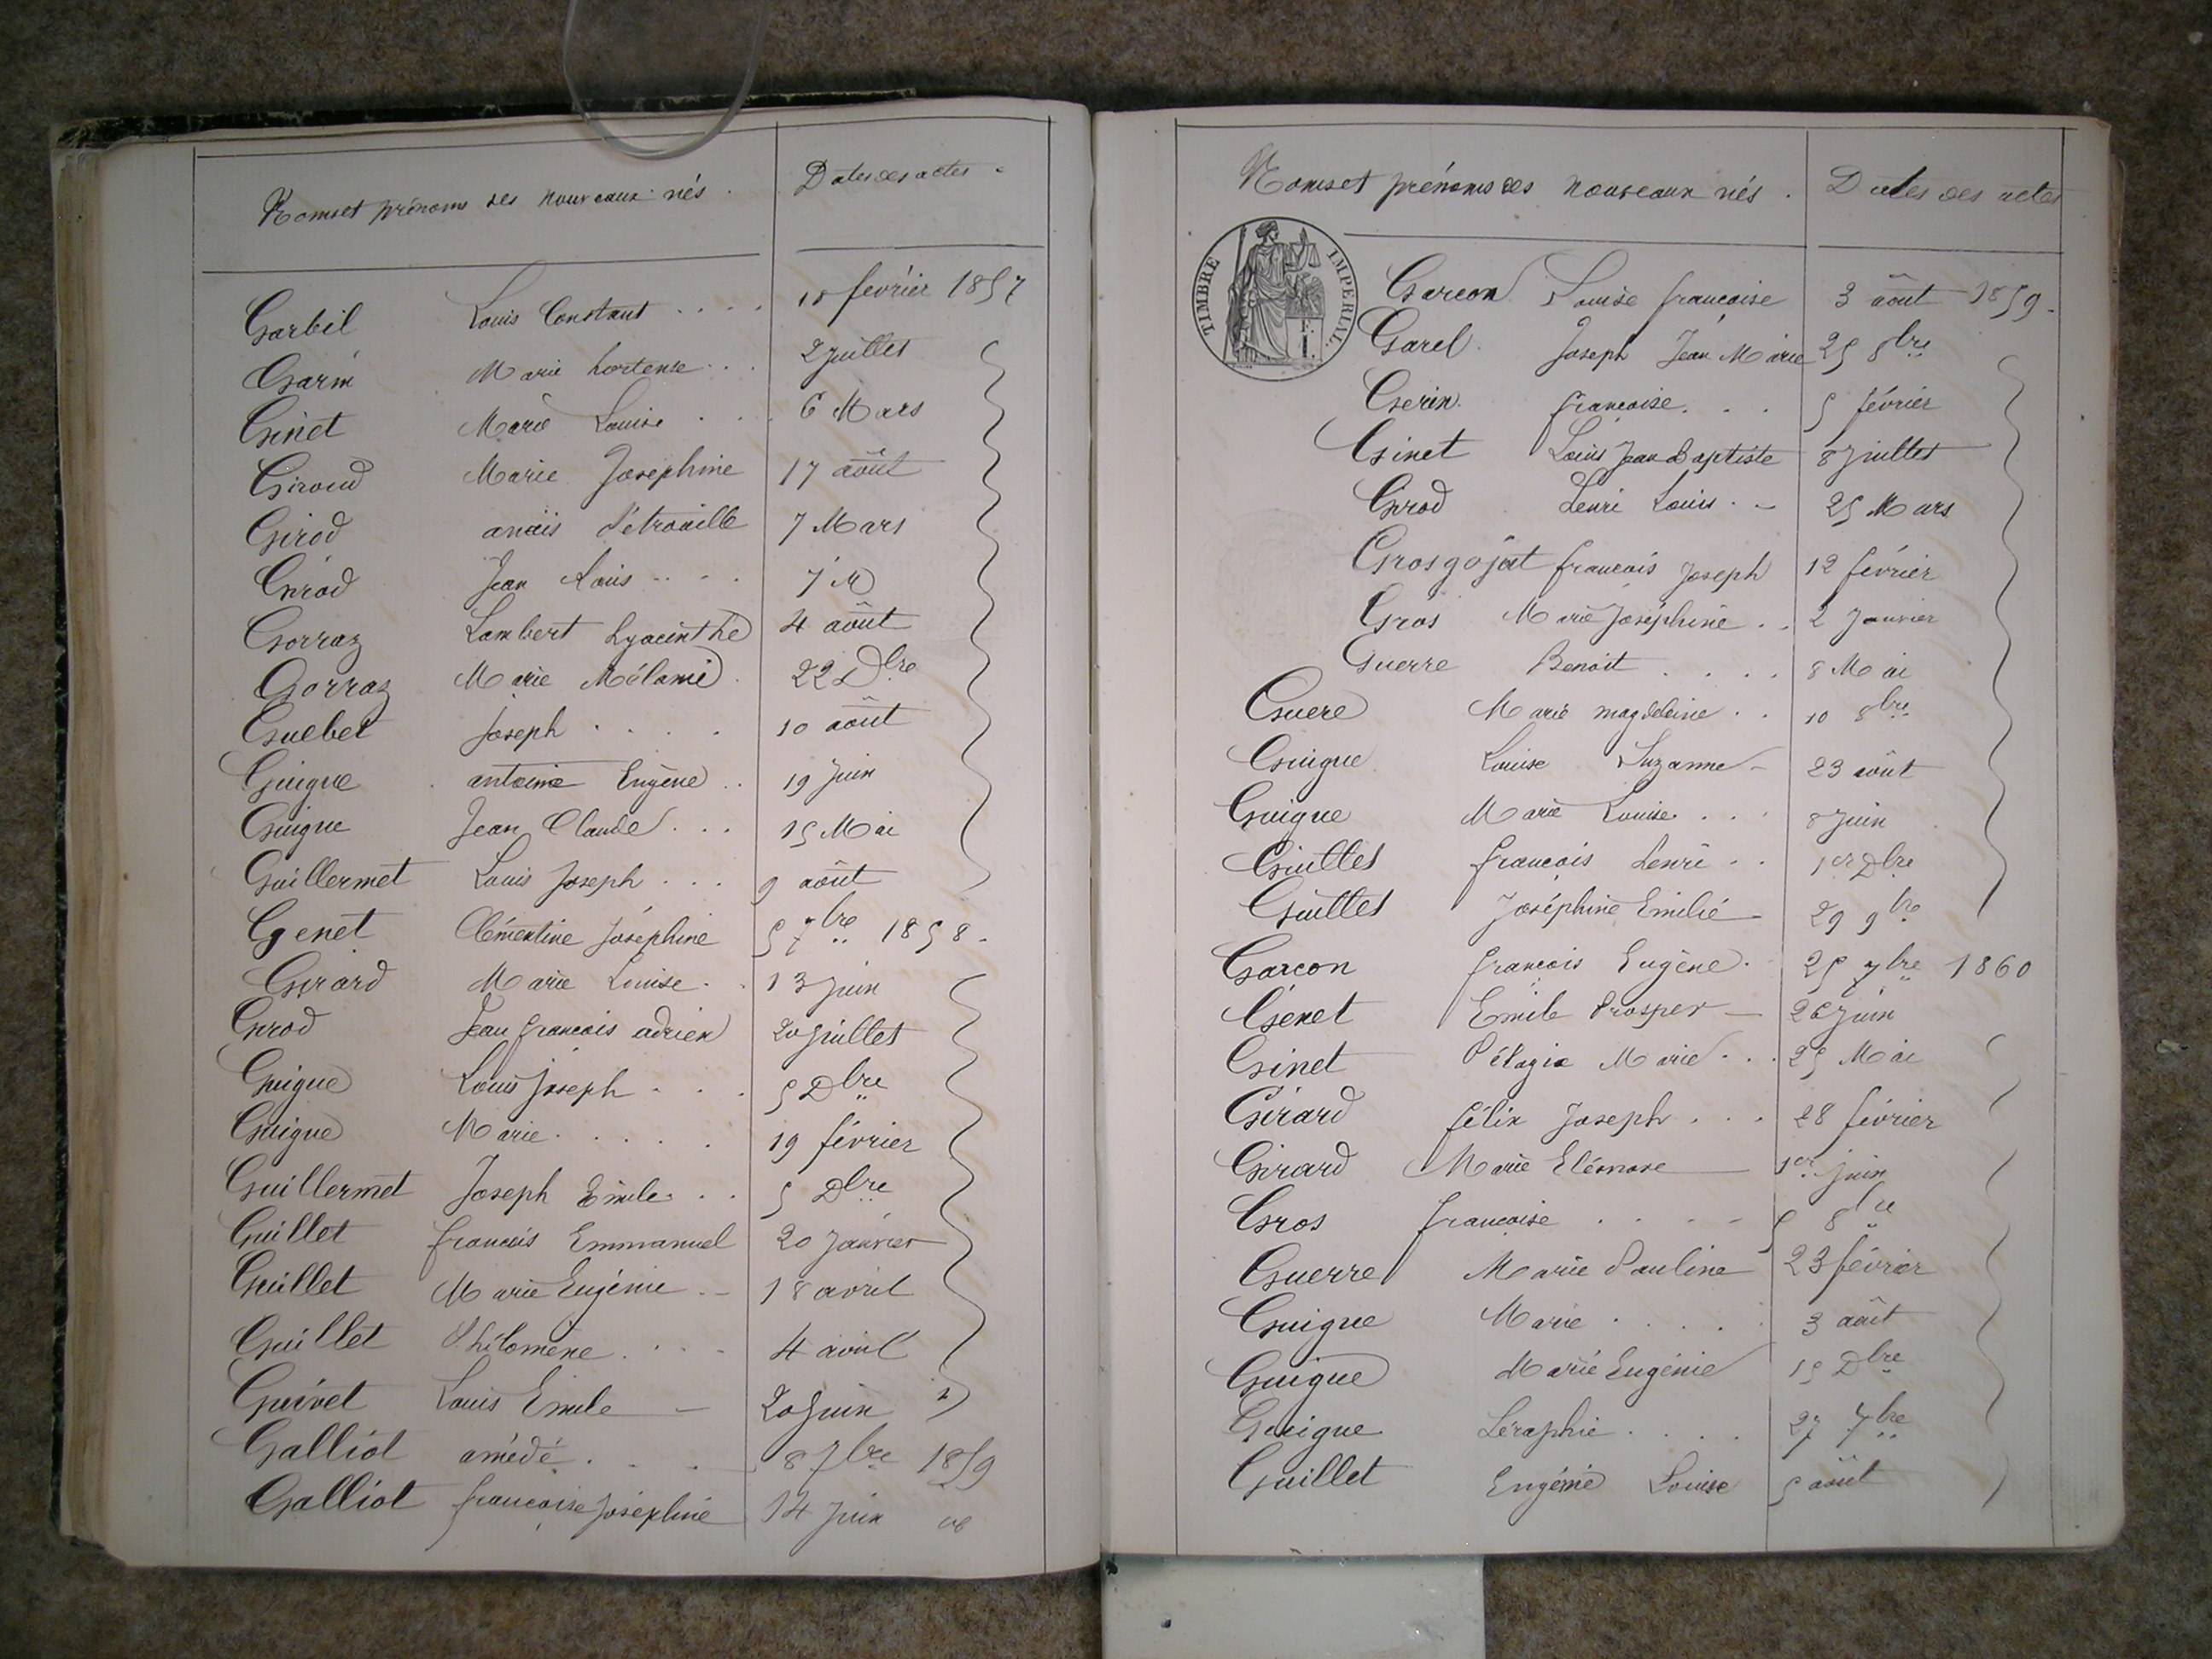 Noms et prénoms des nouveaux nés. Dates des actes
Garbil Louis Constant .... 18 février 1857
Garin Marie hortense ... 2 Juillet
Ginet Marie Louise ... 6 Mars
Giroud Marie Joséphine 17 août
Girod anaïs Pétronille 7 Mars
Girod Jean Louis .... 7 id
Gorraz Lambert hyacinthe 4 août
Gorraz Marie Mélanie . 22 Dbre
Guebet Joseph .... 10 août
Guigue antoine Eugène .. 19 Juin
Guigue Jean Claude ... 15 Mai
Guillermet Louis Joseph ... 9 août
Genet Clémentine Joséphine 5 7bre 1858.
Girard Marie Louise .. 13 Juin
Girod Jean françois adrien 20 Juillet
Guigue Louis Joseph ... 5 Dbre
Guigue Marie ..... 19 février
Guillermet Joseph Emile .. 5 Dbre
Guillet françois Emmanuel 20 Janvier
Guillet Marie Eugénie .. 18 avril
Guillet Philomène .... 4 avril
Guivet Louis Emile - 20 Juin
Galliot amédé ... 8 7bre 1859
Galliot françoise Joséphine 14 Juin
Noms et prénoms des nouveaux nés. Dates des actes
TIMBRE IMPERIAL.
Garcon Louise françoise 3 août 1859.
Garel. Joseph Jean Marie 25 8bre
Gerin. françoise ... 5 février
Ginet Louis Jean Baptiste 8 Juillet
Girod henri Louis .. 25 Mars
Grosgojat françois Joseph 12 février
Gros Marie Joséphine .. 2 Janvier
Guerre Benoit .... 8 Mai
Guere Marie magdeleine .. 10 8bre
Guigue Louise Suzanne - 23 août
Guigue Marie Louise ... 8 Juin
Guillet françois henri .. 1er Dbre
Guillet Joséphine Emilie 29 9bre
Garcon françois Eugène. 25 7bre 1860
Genet Emile Prosper - 26 Juin
Ginet Pélagie Marie ... 25 Mai
Girard félix Joseph ... 28 février
Girard Marie Eléonore 1er juin
Gros françoise .... 5 8bre
Guerre Marie Pauline 23 février
Guigue Marie .... 3 août
Guigue Marie Eugénie 15 Dbre
Guigue Séraphie .... 27 7bre
Guillet Eugénie Louise 5 août